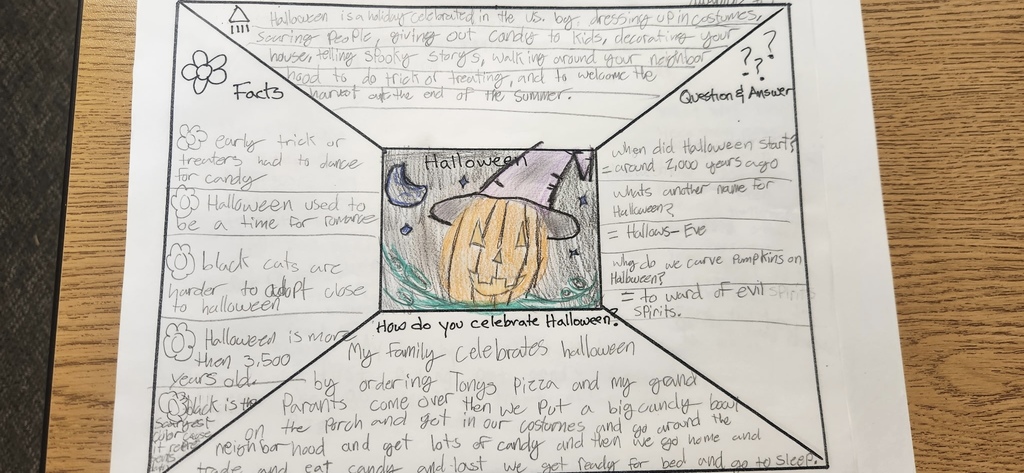 Halloween is a holiday celebrated in the us. by dressing up in costumes,
scaring people, giving out candy to kids, decorating your
house, telling spooky storys, walking around your neighbor
hood to do trick or treating, and to welcome the
harvest at the end of the summer.
Facts
early trick or
treaters had to dance
for candy
Halloween used to
be a time for romance
black cats are
harder to adopt close
to halloween
Halloween is more
then 3,500
years old.
black is the
Halloween
? ? ?
Question & Answer
when did Halloween start?
= around 2,000 years ago
whats another name for
Halloween?
= Hallows-Eve
why do we carve Pumpkins on
Halloween?
= to ward of evil spirits
spirits.
How do you celebrate Halloween?
My Family celebrates halloween
by ordering Tonys Pizza and my grand
Parants come over then we put a big candy bowl
on the Porch and get in our costumes and go around the
neighborhood and get lots of candy and then we go home and
trade and eat candy and last we get ready for bed and go to sleep.